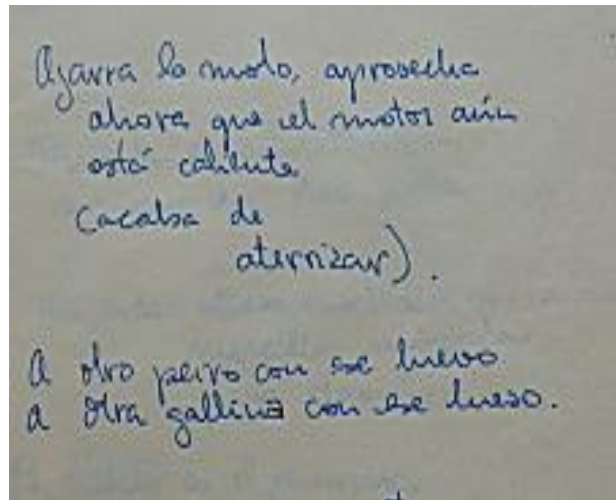 Agarra la moto, aprovecha
ahora que el motor aún
está caliente
(acaba de
aterrizar).
A otro perro con ese huevo
a otra gallina con ese hueso.